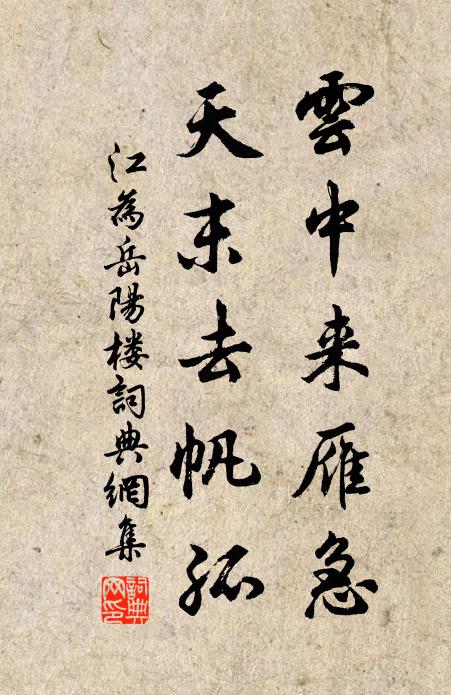 雲中来雁急
天末去帆孤
江為岳陽楼詞典網集
詞典
网印